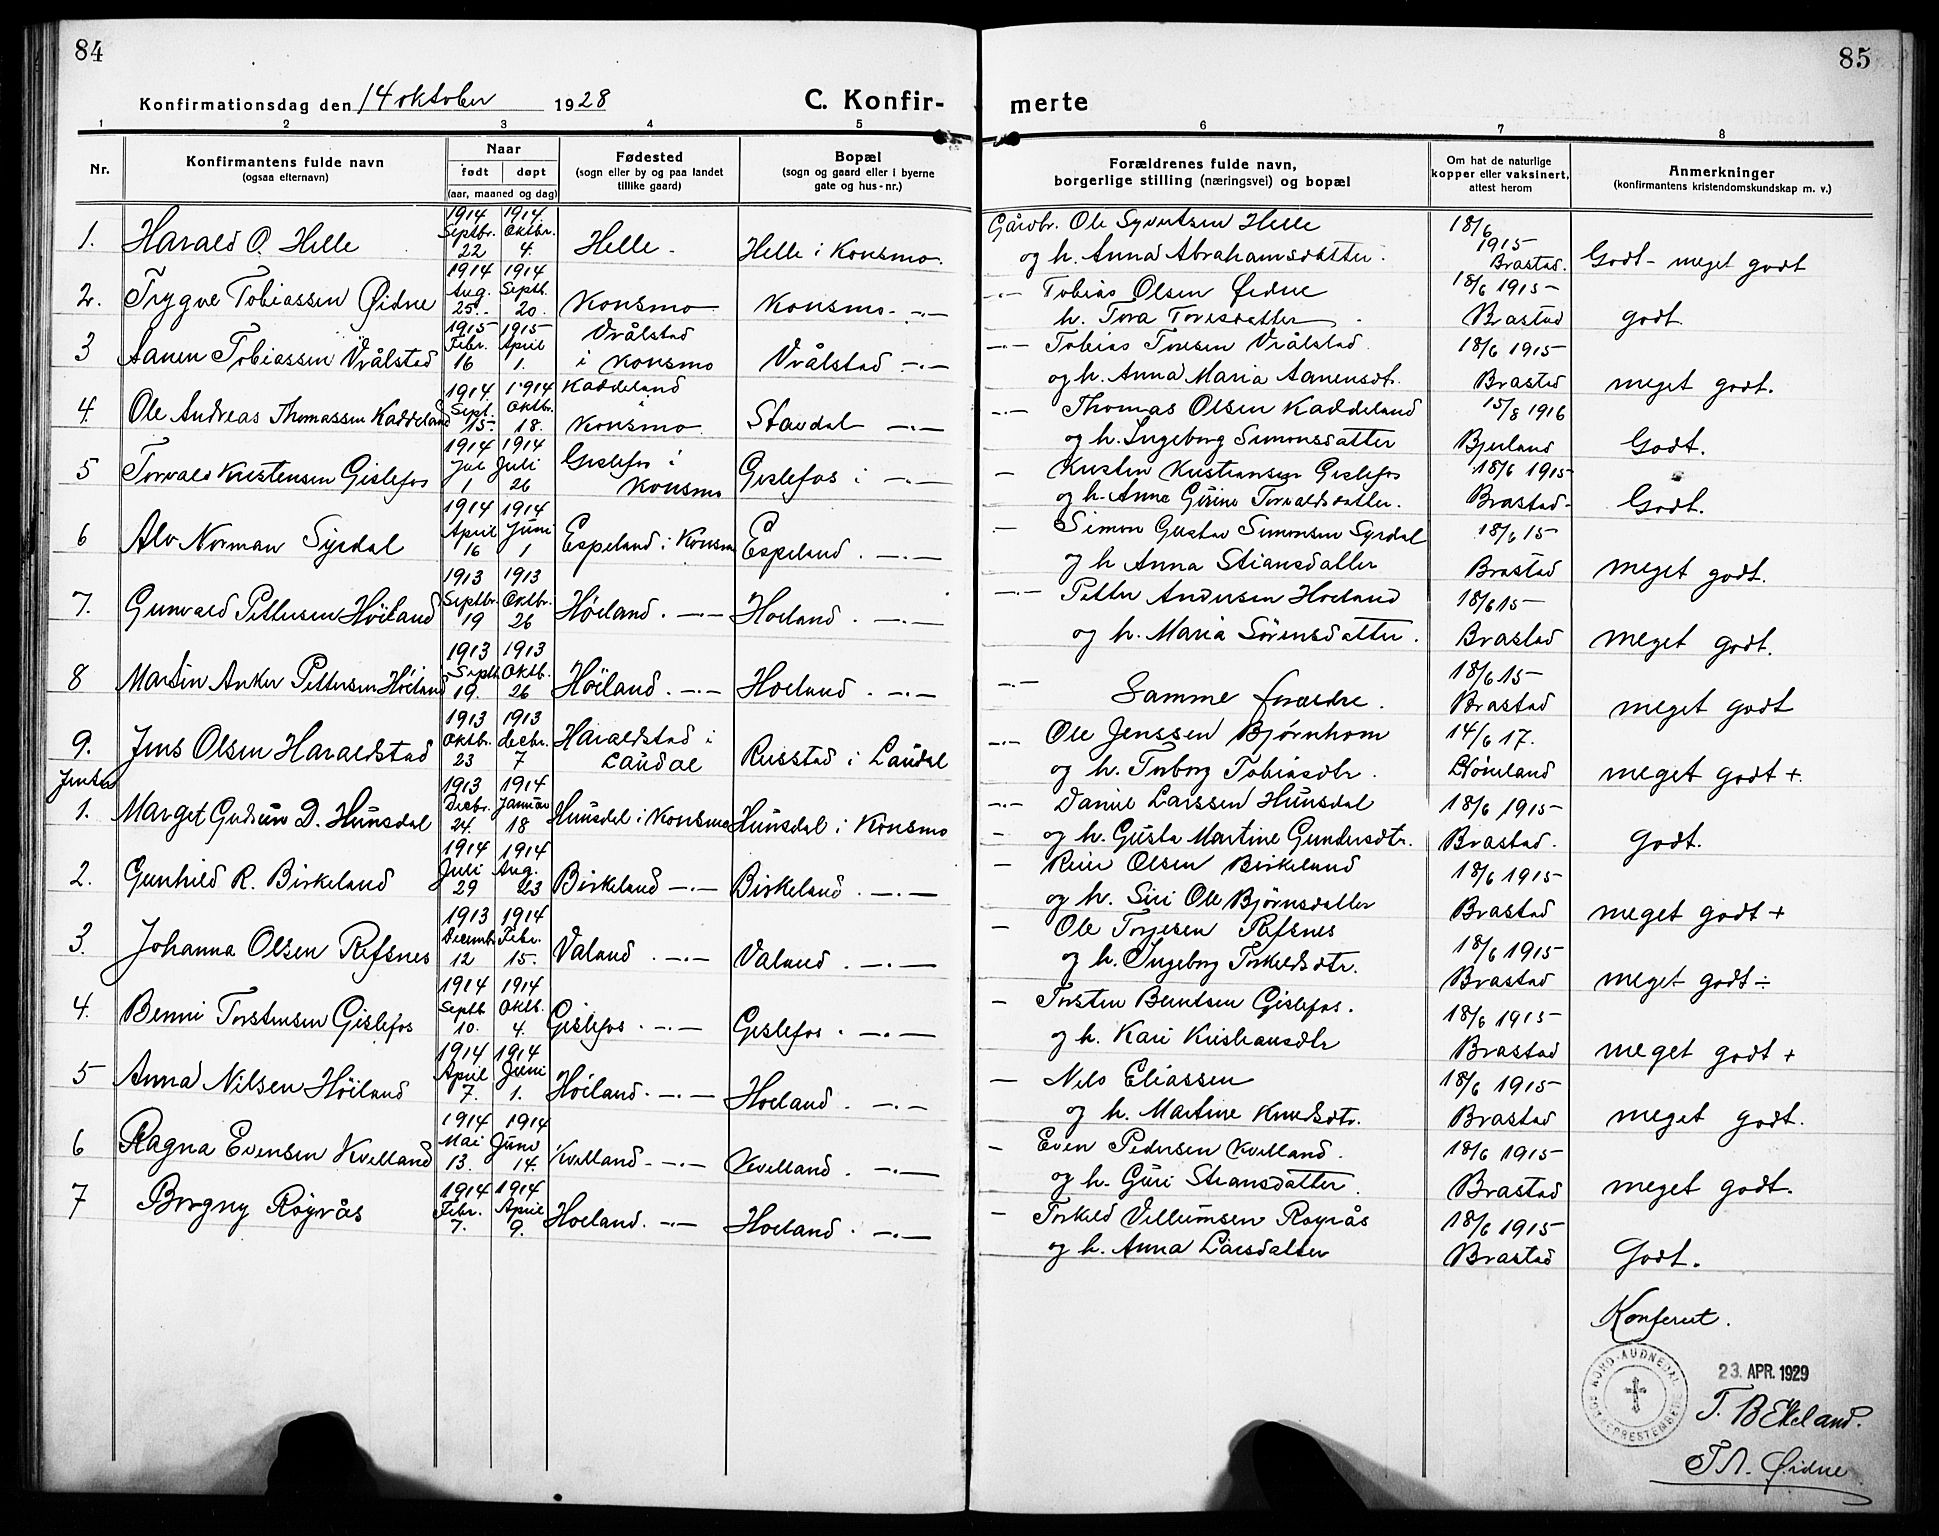 84
85
Konfirmationsdag den 14 oktober 1928
C. Konfir-
merte
1 2 3 4 5 6 7 8
Nr.
Konfirmantens fulde navn
(ogsaa efternavn)
Naar
født døpt
(aar, maaned og dag)
Fødested
(sogn eller by og paa landet
tillike gaard)
Bopæl
(sogn og gaard eller i byerne
gate og hus-nr.)
Forældrenes fulde navn,
borgerlige stilling (næringsvei) og bopæl
Om hat de naturlige
kopper eller vaksinert,
attest herom
Anmerkninger
(konfirmantens kristendomskundskap m. v.)
1. Harald O. Helle 1914 Septbr. 22 1914 Oktbr. 4. Helle - Helle i Konsmo. Gårdbr. Ole Syvertsen Helle 18/6 1915
og h. Anna Abrahamsdatter. Brastad. Godt - meget godt
2. Trygve Tobiassen Øidne 1914 Aug. 25. 1914 Septb. 20. Konsmo Konsmo -.- -.- Tobias Olsen Øidne 18/6 1915
h. Tora Toresdatter Brastad godt.
3 Aanen Tobiassen Vrålstad 1915 Febr. 16 1915 April 1. Vrålstad i Konsmo Vrålstad -.- -.- Tobias Toresen Vrålstad. 18/6 1915
og h. Anna Maria Aanensdtr. Brastad meget godt.
4. Ole Andreas Thomassen Kaddeland 1914 Sept. 15. 1914 Oktbr. 18. Kaddeland i Konsmo. Staudal -.- -.- Thomas Olsen Kaddeland 15/8 1916
og h. Ingeborg Simonsdatter Bjelland Godt.
5 Torvald Kristensen Gislefos 1914 Jul 1 1914 Juli 26 Gislefos i Konsmo Gislefos i -.- - Kristen Kristiansen Gislefos 18/6 1915
og h. Anne Gurine Torvaldsdatter. Brastad Godt.
6 Alv Norman Syrdal 1914 April 16 1914 Juni 1 Espeland i Konsm Espeland. -.- - Simon Gustav Simonsen Syrdal 18/6 15
og h Anna Stiansdatter Brastad meget godt.
7. Gunvald Pettersen Höiland 1913 Septbr. 19 1913 Oktbr. 26 Höiland. -.- Hoeland. -.- -.- Petter Andersen Hoeland 18/6 15
og h. Maria Sörensdatter. Brastad meget godt.
8 Martin Anker Pettersen Höiland 1913 Septb. 19. 1913 Oktb. 26 Höiland. -.- Hoeland. -.- -.- Samme foræeldre. 18/6 15
Brastad meget godt
9. Jens Olsen Haraldstad 1913 Oktbr. 23 1913 decbr. 7 Haraldstad i Laudal Russtad i Laudal -.- Ole Jenssen Bjørnhom 14/6 17.
og h. Torborg Tobiasdtr. meget godt +
1. Marget Gudrun D. Hunsdal 1913 Decbr. 24. 1914 Januar 18 Hunsdal i Konsmo Hunsdal i Konsmo -.- Daniel Larssen Hunsdal 18/6 1915
og h. Gusta Martine Gundersdtr. Brastad. Godt.
2. Gunhild R. Birkeland 1914 Juli 29 1914 Aug. 23 Birkeland -.- Birkeland. -.- - Reier Olsen Birkeland 18/6 1915
og h. Siri Ole Bjørnsdatter Brastad meget godt +
3. Johanna Olsen Refsnes 1913 Decemb. 12 1914 Febr. 15. Valand. -.- Valand. -.- - Ole Torjesen Refsnes 18/6 1915
og h. Ingeborg Torkeldsdtr. Brastad meget godt ÷
4. Benni Torstensen Gislefos 1914 Septb 10. 1914 Oktb. 4. Gislefos. -.- Gislefos. -.- - Torsten Berntsen Gislefos. 18/6 1915
og h. Kari Kristiansdtr Brastad meget godt +
5 Anna Nilsen Höiland 1914 April 7. 1914 Juni 1. Höiland. -.- Hoeland. -.- - Nils Eliassen 18/6 1915
og h. Martine Knudsdtr. Brastad meget godt.
6 Ragna Evensen Kvelland 1914 Mai 13. 1914 Juno 14. Kvelland. -.- Kvelland. -.- - Even Pedersen Kvelland. 18/6 1915
og h. Guri Stiansdatter. Brastad meget godt.
7 Borgny Röyrås 1914 Febr. 7. 1914 April 9. Hoeland. -.- Hoeland. -.- - Torkeld Villumsen Royrås 18/6 1915
og h. Anna Larsdatter Brastad Godt.
Konferert.
NORD-AUDNEDAL SOKNEPRESTEMBEDE
23. APR. 1929
T. B Ekeland.
T A. Øidne